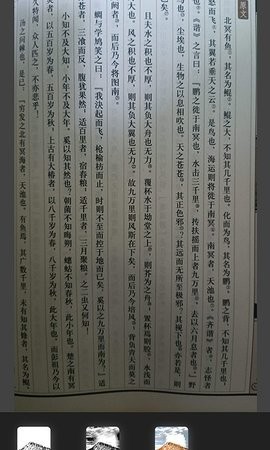 原文
北冥有鱼，其名为鲲。鲲之大，不知其几千里也。化而为鸟，其名为鹏。鹏之背，不知其几千里也；
怒而飞，其翼若垂天之云。是鸟也，海运则将徙于南冥。南冥者，天池也。《齐谐》者，志怪者
也。《谐》之言曰：“鹏之徙于南冥也，水击三千里，抟扶摇而上者九万里，去以六月息者也。”野
马也，尘埃也，生物之以息相吹也。天之苍苍，其正色邪？其远而无所至极邪？其视下也，亦若是，则
已矣。
且夫水之积也不厚，则其负大舟也无力。覆杯水于坳堂之上，则芥为之舟；置杯焉则胶，水浅而
大也。风之积也不厚，则其负大翼也无力。故九万里则风斯在下矣，而后乃今培风；背负青天而莫之
阏者，而后乃今将图南。
蜩与学鸠笑之曰：“我决起而飞，枪榆枋而止，时则不至而控于地而已矣，奚以之九万里而南为？”适
苍者，三湌而反，腹犹果然；适百里者，宿舂粮；适千里者，三月聚粮。之二虫又何知！
小知不及大知，小年不及大年。奚以知其然也？朝菌不知晦朔，蟪蛄不知春秋，此小年也。楚之南有冥
灵者，以五百岁为春，五百岁为秋；上古有大椿者，以八千岁为春，八千岁为秋，此大年也。而彭祖乃今以
久特闻，众人匹之，不亦悲乎！
汤之问棘也是已：“穷发之北有冥海者，天池也。有鱼焉，其广数千里，未有知其修者，其名为鲲。